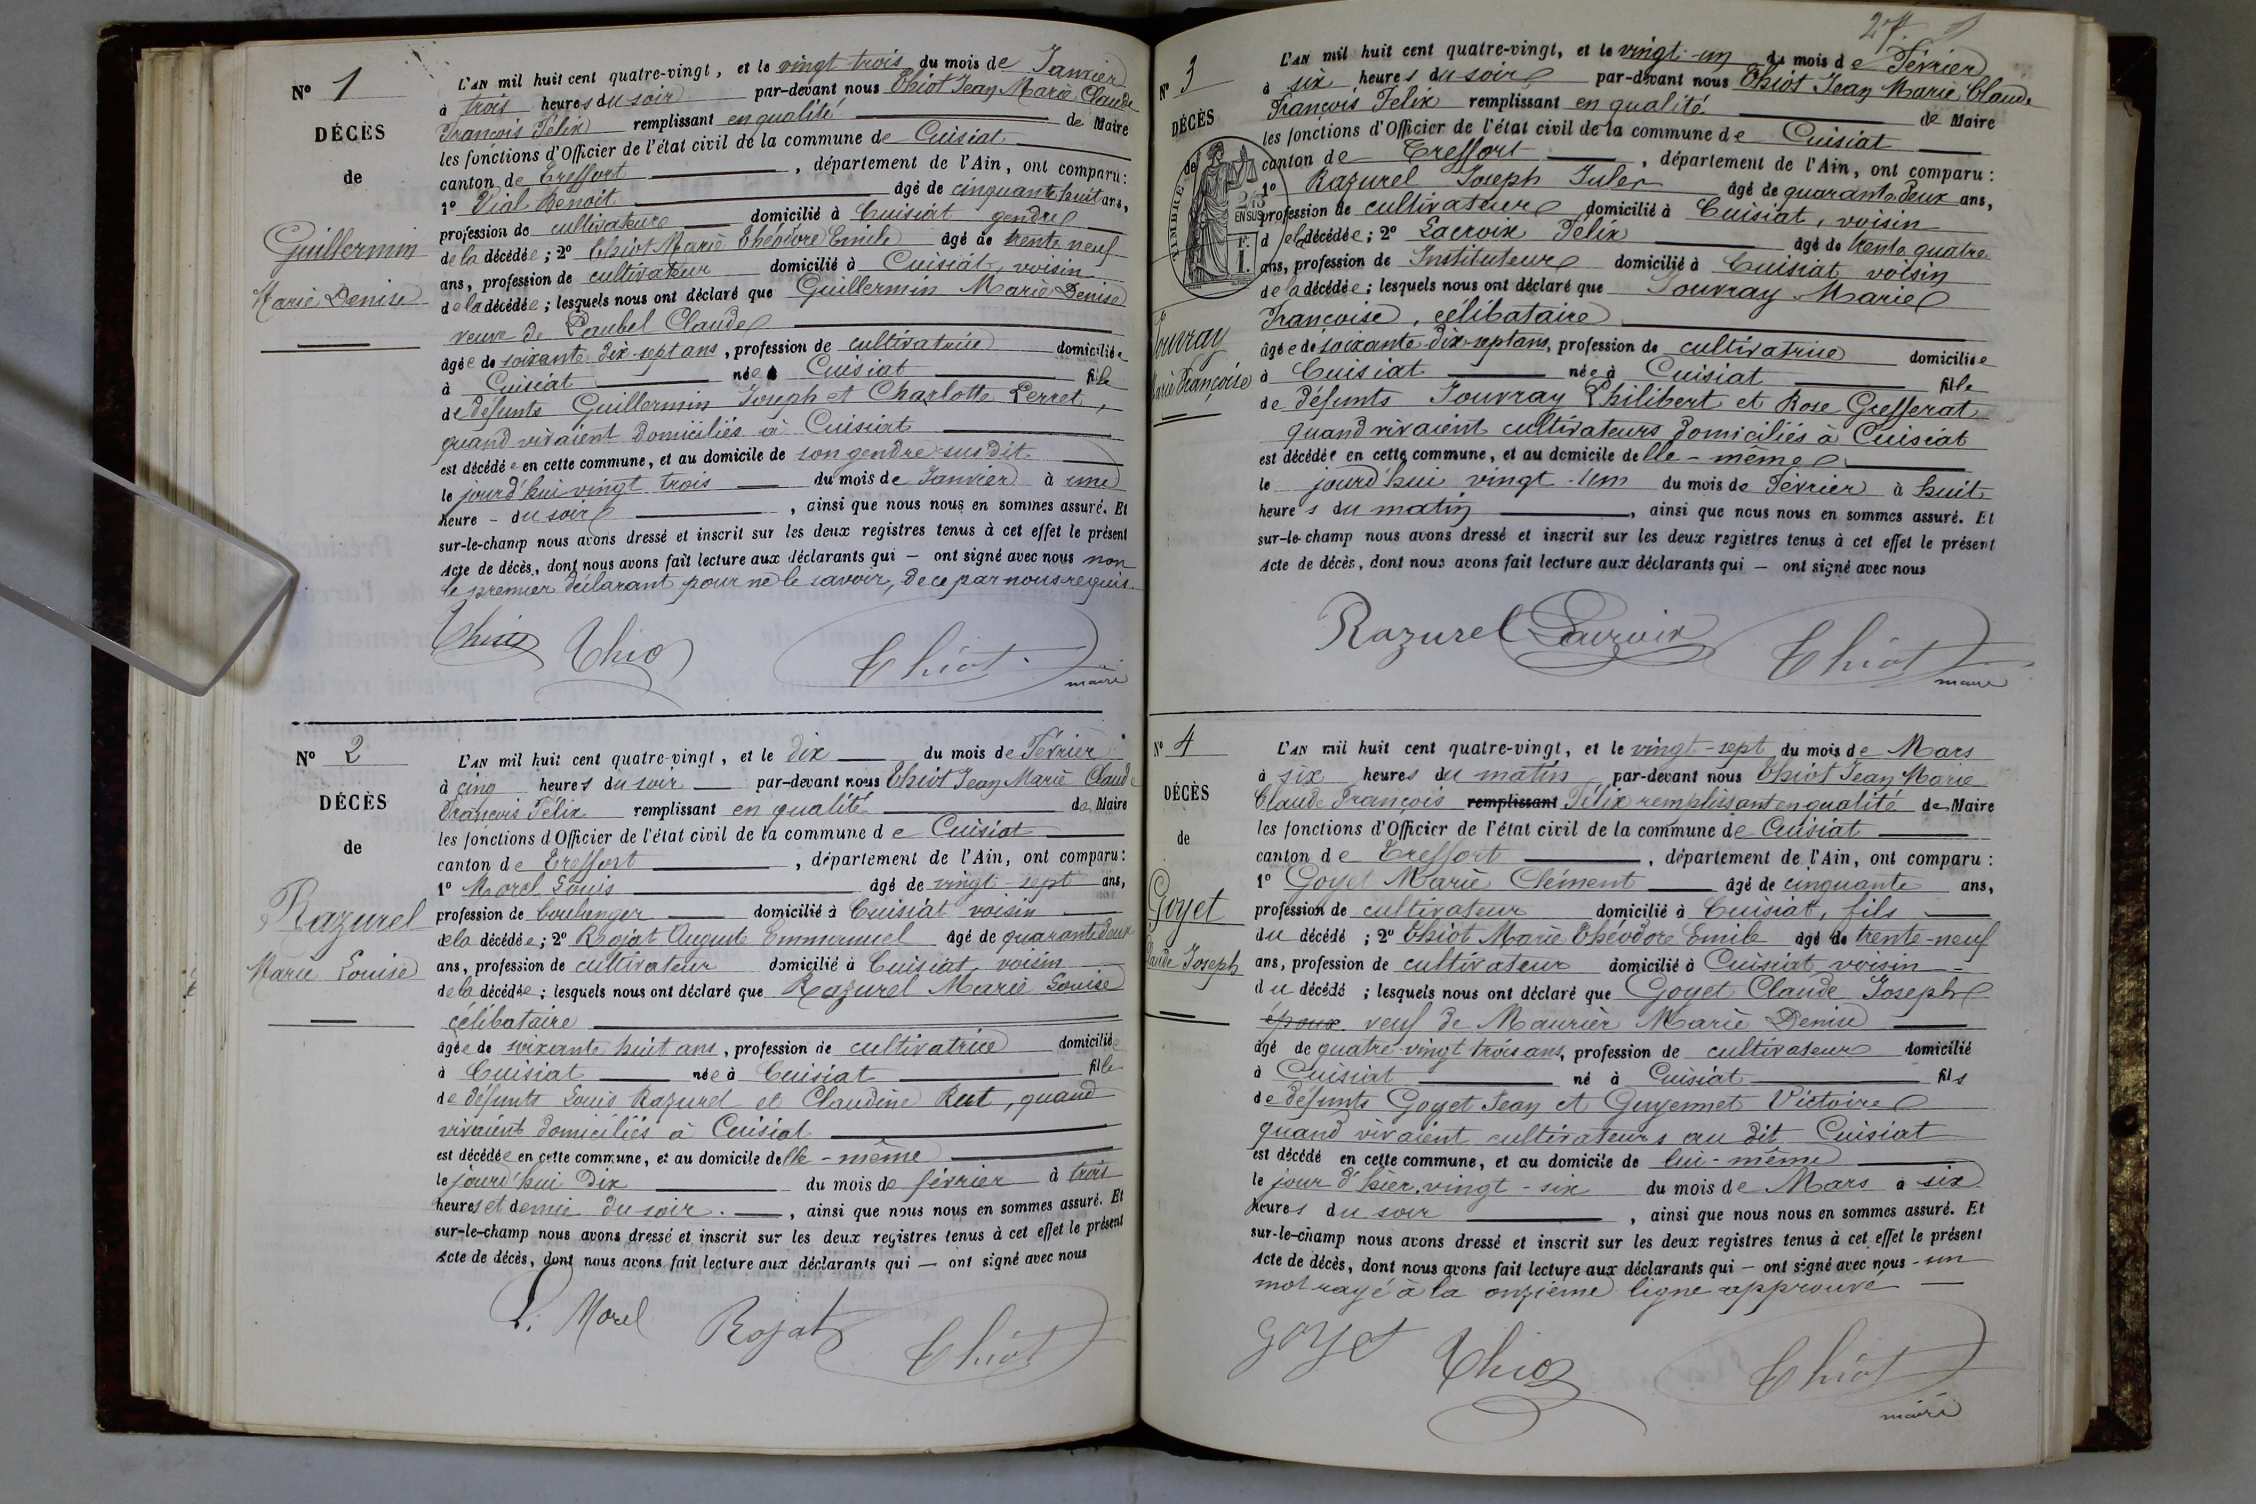 N° 1
DÉCÈS
de
Guillermin
Marie Denise
L'AN mil huit cent quatre-vingt, et le vingt trois du mois de Janvier
à trois heures du soir par-devant nous Thiot Jean Marie Claude
François Félix remplissant en qualité de Maire
les fonctions d'Officier de l'état civil de la commune de Cuisiat
canton de Treffort, département de l'Ain, ont comparu:
1° Vial Benoit âgé de cinquante huit ans,
profession de cultivateur domicilié à Cuisiat gendre
de la décédée; 2° Thiot Marie Théodore Emile âgé de trente neuf
ans, profession de cultivateur domicilié à Cuisiat, voisin
de la décédée; lesquels nous ont déclaré que Guillermin Marie Denise
veuve de Paubel Claude
âgée de soixante dix-sept ans, profession de cultivatrice domiciliée
à Cuisiat née à Cuisiat fille
de défunts Guillermin Joseph et Charlotte Perret,
quand vivaient domiciliés à Cuisiat
est décédée en cette commune, et au domicile de son gendre susdit
le jourd'hui vingt trois du mois de Janvier à une
heure - du soir, ainsi que nous nous en sommes assuré. Et
sur-le-champ nous avons dressé et inscrit sur les deux registres tenus à cet effet le présent
Acte de décès, dont nous avons fait lecture aux déclarants qui — ont signé avec nous non
le premier déclarant pour ne le savoir, de ce par nous requis.
Thiot Thiot
maire
N° 2
DÉCÈS
de
Razurel
Marie Louise
L'AN mil huit cent quatre-vingt, et le dix du mois de Février
à cinq heures du soir par-devant nous Thiot Jean Marie Claude
François Félix remplissant en qualité de Maire
les fonctions d'Officier de l'état civil de la commune de Cuisiat
canton de Treffort, département de l'Ain, ont comparu:
1° Morel Louis âgé de vingt sept ans,
profession de boulanger domicilié à Cuisiat voisin
de la décédée; 2° Rojat Auguste Emmanuel âgé de quarante deux
ans, profession de cultivateur domicilié à Cuisiat voisin
de la décédée; lesquels nous ont déclaré que Razurel Marie Louise
célibataire
âgée de soixante huit ans, profession de cultivatrice domiciliée
à Cuisiat née à Cuisiat fille
de défunts Louis Razurel et Claudine Rut, quand
vivaient domiciliés à Cuisiat
est décédée en cette commune, et au domicile d'elle-même
le jourd'hui dix du mois de février à trois
heures et demie du soir, ainsi que nous nous en sommes assuré. Et
sur-le-champ nous avons dressé et inscrit sur les deux registres tenus à cet effet le présent
Acte de décès, dont nous avons fait lecture aux déclarants qui — ont signé avec nous
L. Morel Rojat Thiot
27.
N° 3
DÉCÈS
de
TIMBRE
EN SUS
Jouvray
Marie Françoise
L'AN mil huit cent quatre-vingt, et le vingt-un du mois de Février
à six heures du soir par-devant nous Thiot Jean Marie Claude
François Félix remplissant en qualité de Maire
les fonctions d'Officier de l'état civil de la commune de Cuisiat
canton de Treffort, département de l'Ain, ont comparu:
1° Razurel Joseph Jules âgé de quarante deux ans,
profession de cultivateur domicilié à Cuisiat, voisin
de la décédée; 2° Lacroix Félix âgé de trente quatre
ans, profession de Instituteur domicilié à Cuisiat voisin
de la décédée; lesquels nous ont déclaré que Jouvray Marie
Françoise, célibataire
âgée de soixante-dix-sept ans, profession de cultivatrice domiciliée
à Cuisiat née à Cuisiat fille
de défunts Jouvray Philibert et Rose Gresserat
quand vivaient cultivateurs domiciliés à Cuisiat
est décédée en cette commune, et au domicile d'elle-même
le jourd'hui vingt-un du mois de Février à huit
heures du matin, ainsi que nous nous en sommes assuré. Et
sur-le-champ nous avons dressé et inscrit sur les deux registres tenus à cet effet le présent
Acte de décès, dont nous avons fait lecture aux déclarants qui — ont signé avec nous
Razurel Lacroix Thiot
maire
N° 4
DÉCÈS
de
Goyet
Claude Joseph
L'AN mil huit cent quatre-vingt, et le vingt-sept du mois de Mars
à six heures du matin par-devant nous Thiot Jean Marie
Claude François remplissant Félix remplissant en qualité de Maire
les fonctions d'Officier de l'état civil de la commune de Cuisiat
canton de Treffort, département de l'Ain, ont comparu:
1° Goyet Marie Clément âgé de cinquante ans,
profession de cultivateur domicilié à Cuisiat, fils
du décédé; 2° Thiot Marie Théodore Emile âgé de trente-neuf
ans, profession de cultivateur domicilié à Cuisiat voisin
du décédé; lesquels nous ont déclaré que Goyet Claude Joseph
époux veuf de Maurier Marie Denise
âgé de quatre-vingt trois ans, profession de cultivateur domicilié
à Cuisiat né à Cuisiat fils
de défunts Goyet Jean et Guyennet Victoire
quand vivaient cultivateurs au dit Cuisiat
est décédé en cette commune, et au domicile de lui-même
le jour d'hier, vingt-six du mois de Mars à six
heures du soir, ainsi que nous nous en sommes assuré. Et
sur-le-champ nous avons dressé et inscrit sur les deux registres tenus à cet effet le présent
Acte de décès, dont nous avons fait lecture aux déclarants qui — ont signé avec nous - un
mot rayé à la onzième ligne approuvé
Goyet Thiot
maire